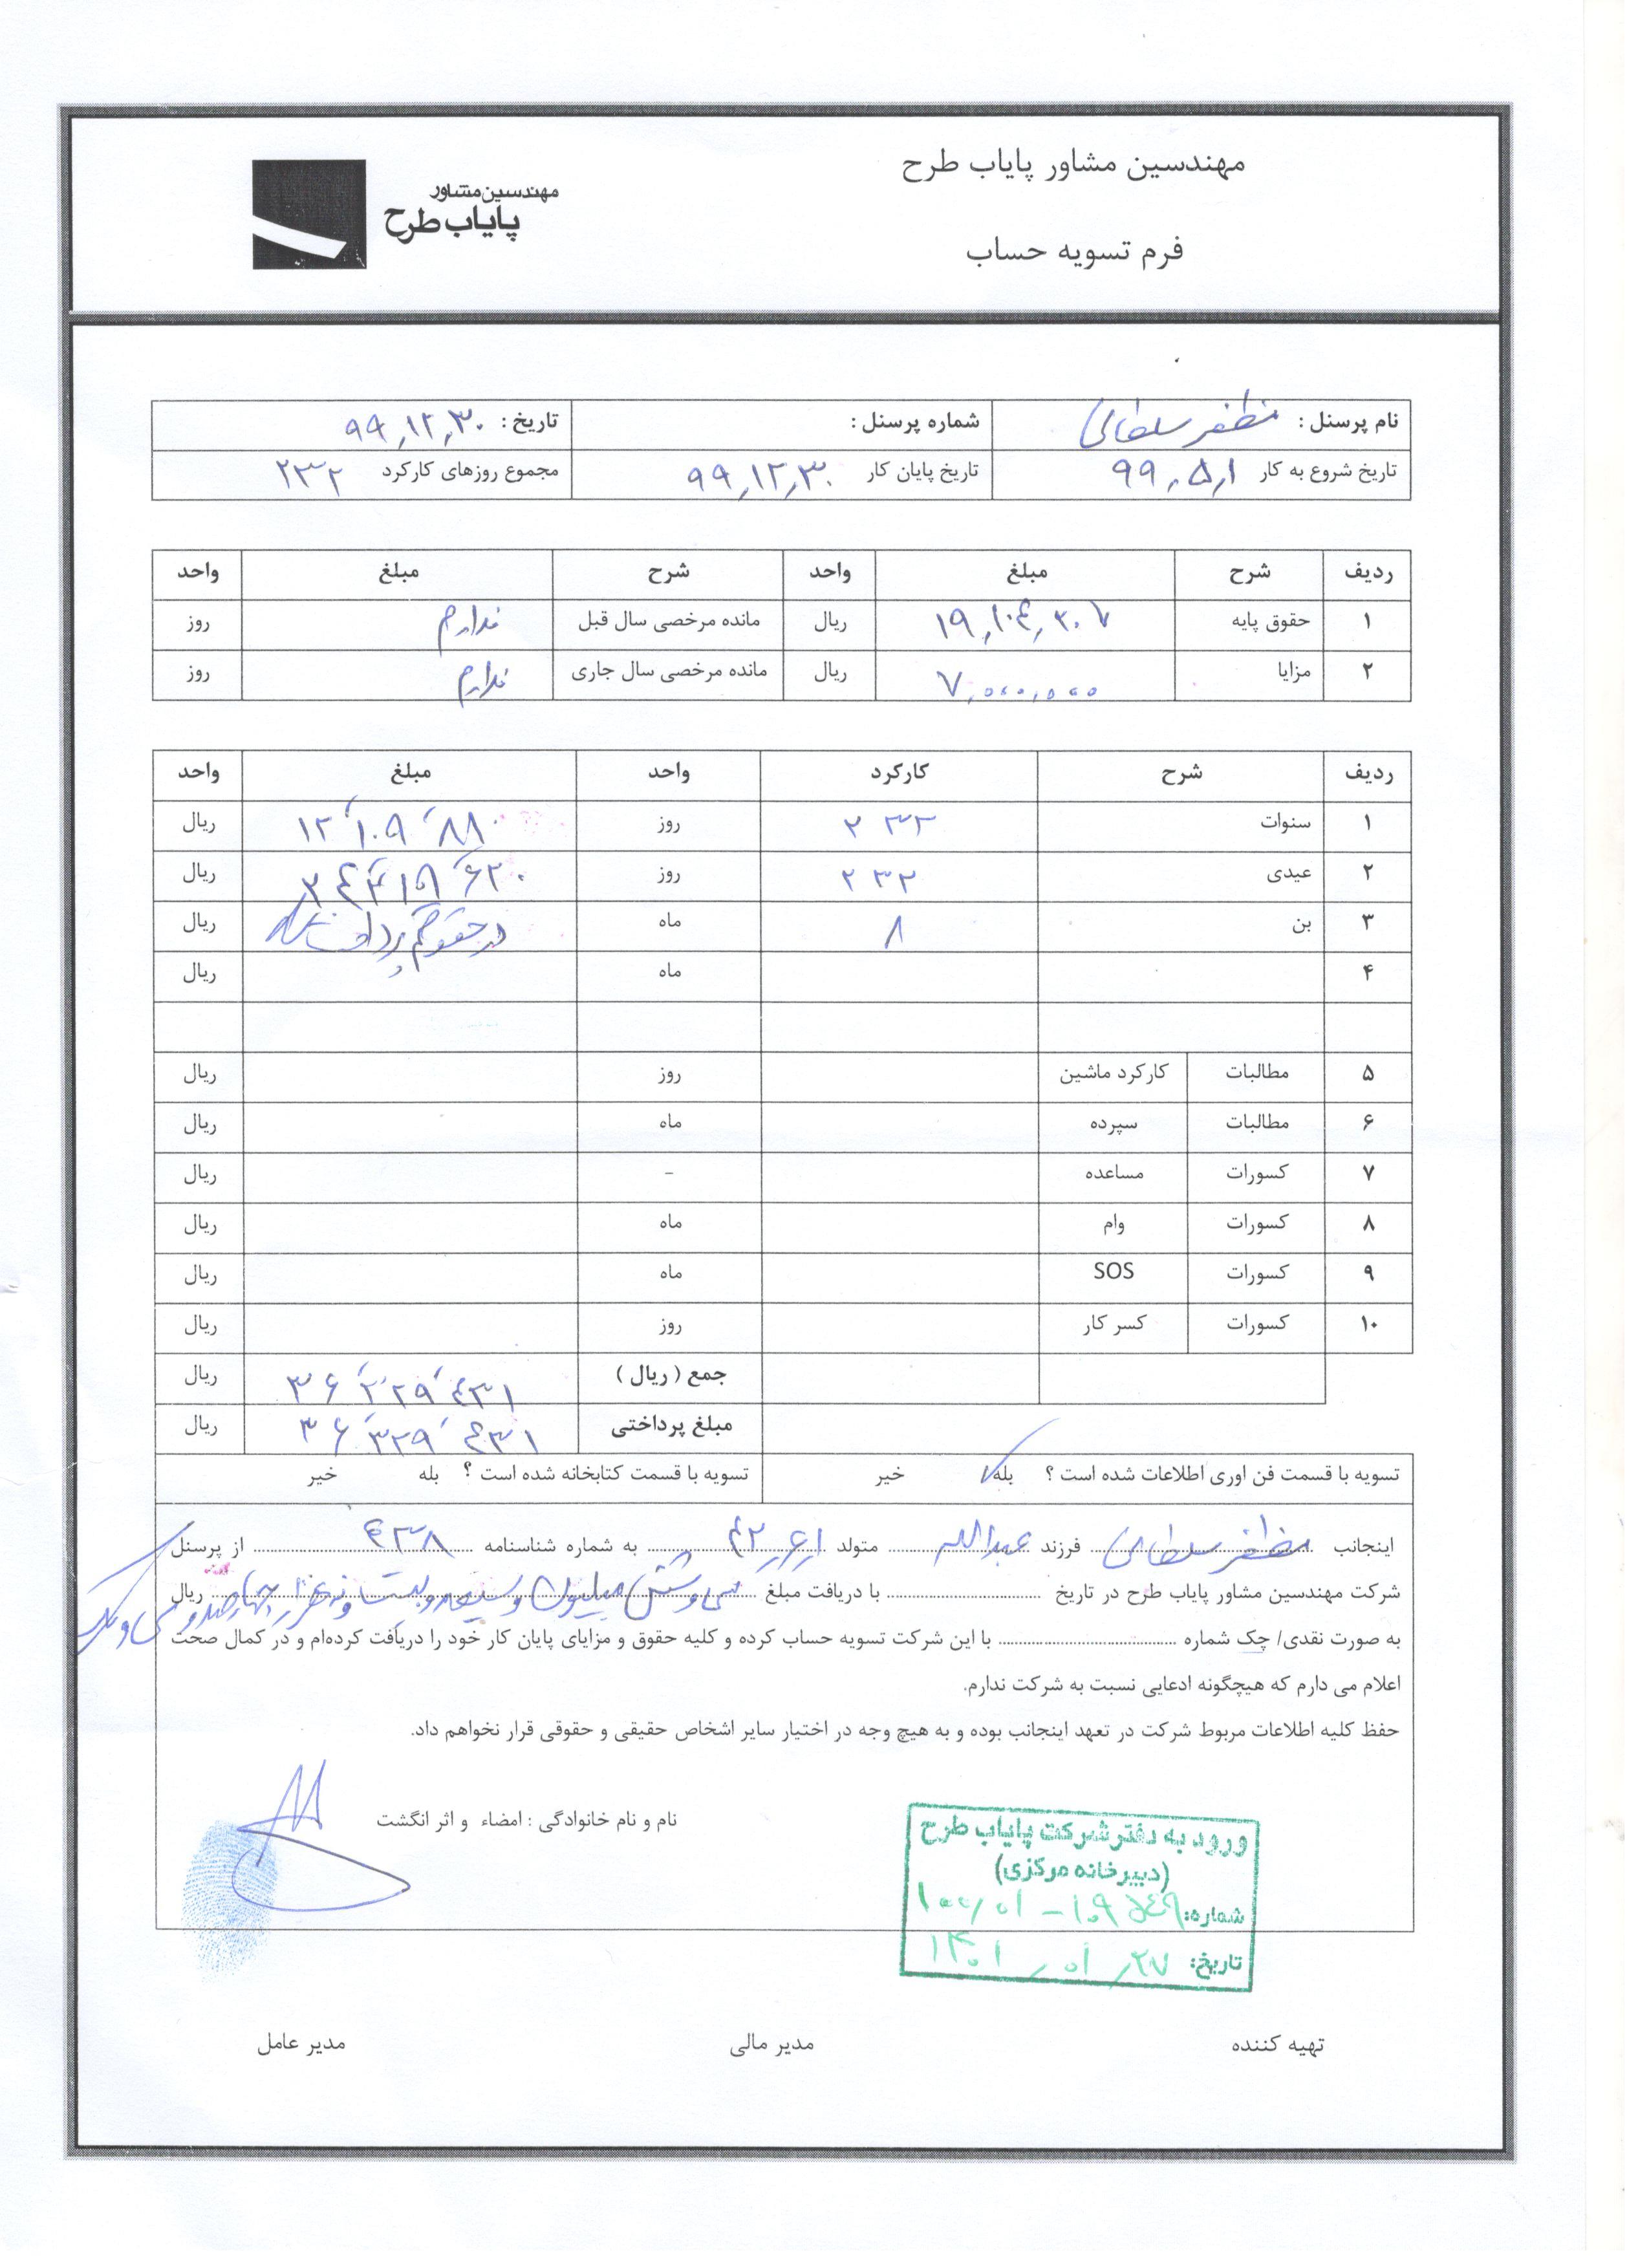 مهندسین مشاور پایاب طرح
مهندسین مشاور
پایاب طرح
فرم تسویه حساب
نام پرسنل : مظفر سلطانی شماره پرسنل : تاریخ : ۹۹,۱۲,۳۰
تاریخ شروع به کار ۹۹,۵,۱ تاریخ پایان کار ۹۹,۱۲,۳۰ مجموع روزهای کارکرد ۲۳۲
ردیف شرح مبلغ واحد شرح مبلغ واحد
۱ حقوق پایه ۱۹,۱۰۴,۳۰۷ ریال مانده مرخصی سال قبل ندارم روز
۲ مزایا ۷,۰۰۰,۰۰۰ ریال مانده مرخصی سال جاری ندارم روز
ردیف شرح کارکرد واحد مبلغ واحد
۱ سنوات ۲۳۲ روز ۱۲,۱۰۹,۸۸۰ ریال
۲ عیدی ۲۳۲ روز ریال
۳ بن ۸ ماه در حقوقم پرداخت شده ریال
۴ ماه ریال
۵ مطالبات کارکرد ماشین روز ریال
۶ مطالبات سپرده ماه ریال
۷ کسورات مساعده - ریال
۸ کسورات وام ماه ریال
۹ کسورات SOS ماه ریال
۱۰ کسورات کسر کار روز ریال
جمع ( ریال ) ۳۶,۳۲۹,۴۳۱ ریال
مبلغ پرداختی ۳۶,۳۲۹,۴۳۱ ریال
تسویه با قسمت فن اوری اطلاعات شده است ؟ بله خیر تسویه با قسمت کتابخانه شده است ؟ بله خیر
اینجانب مظفر سلطانی فرزند عبدالله متولد ۴۲,۶,۱ به شماره شناسنامه ۴۳۸ از پرسنل
شرکت مهندسین مشاور پایاب طرح در تاریخ .......... با دریافت مبلغ سی و شش میلیون و سیصد و بیست و نه هزار چهارصد و سی و یک ریال
به صورت نقدی/ چک شماره .......... با این شرکت تسویه حساب کرده و کلیه حقوق و مزایای پایان کار خود را دریافت کرده‌ام و در کمال صحت
اعلام می دارم که هیچگونه ادعایی نسبت به شرکت ندارم.
حفظ کلیه اطلاعات مربوط شرکت در تعهد اینجانب بوده و به هیچ وجه در اختیار سایر اشخاص حقیقی و حقوقی قرار نخواهم داد.
نام و نام خانوادگی : امضاء و اثر انگشت
ورود به دفتر شرکت پایاب طرح
(دبیرخانه مرکزی)
شماره:
تاریخ: ۱۴۰۱,۰۱,۲۷
تهیه کننده مدیر مالی مدیر عامل